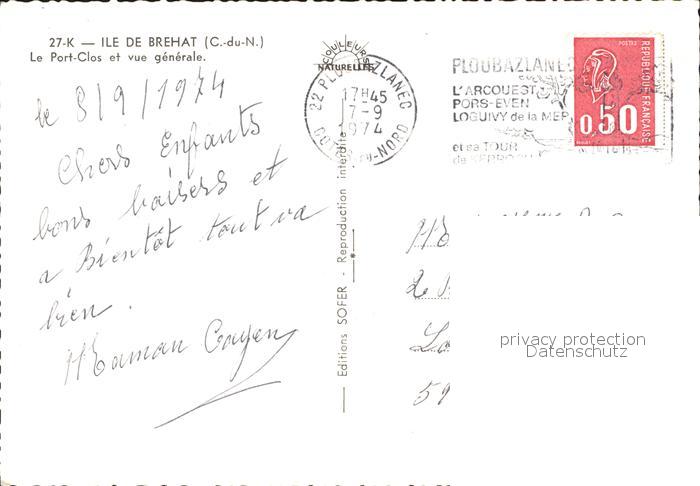 27-K — ILE DE BREHAT (C.-du-N.)
Le Port-Clos et vue générale.
le 8/9/1974
Chers Enfants
bons baisers et
a Bientôt tout va
bien.
Maman
Editions SOFER - Reproduction interdite
COULEURS
NATURELLES
22 PLOUBAZLANEC
17H45
7-9
1974
COTES-DU-NORD
PLOUBAZLANEC
L'ARCOUEST
PORS-EVEN
LOGUIVY de la MER
et sa TOUR
de
POSTES
REPUBLIQUE FRANÇAISE
0,50
privacy protection
Datenschutz
59